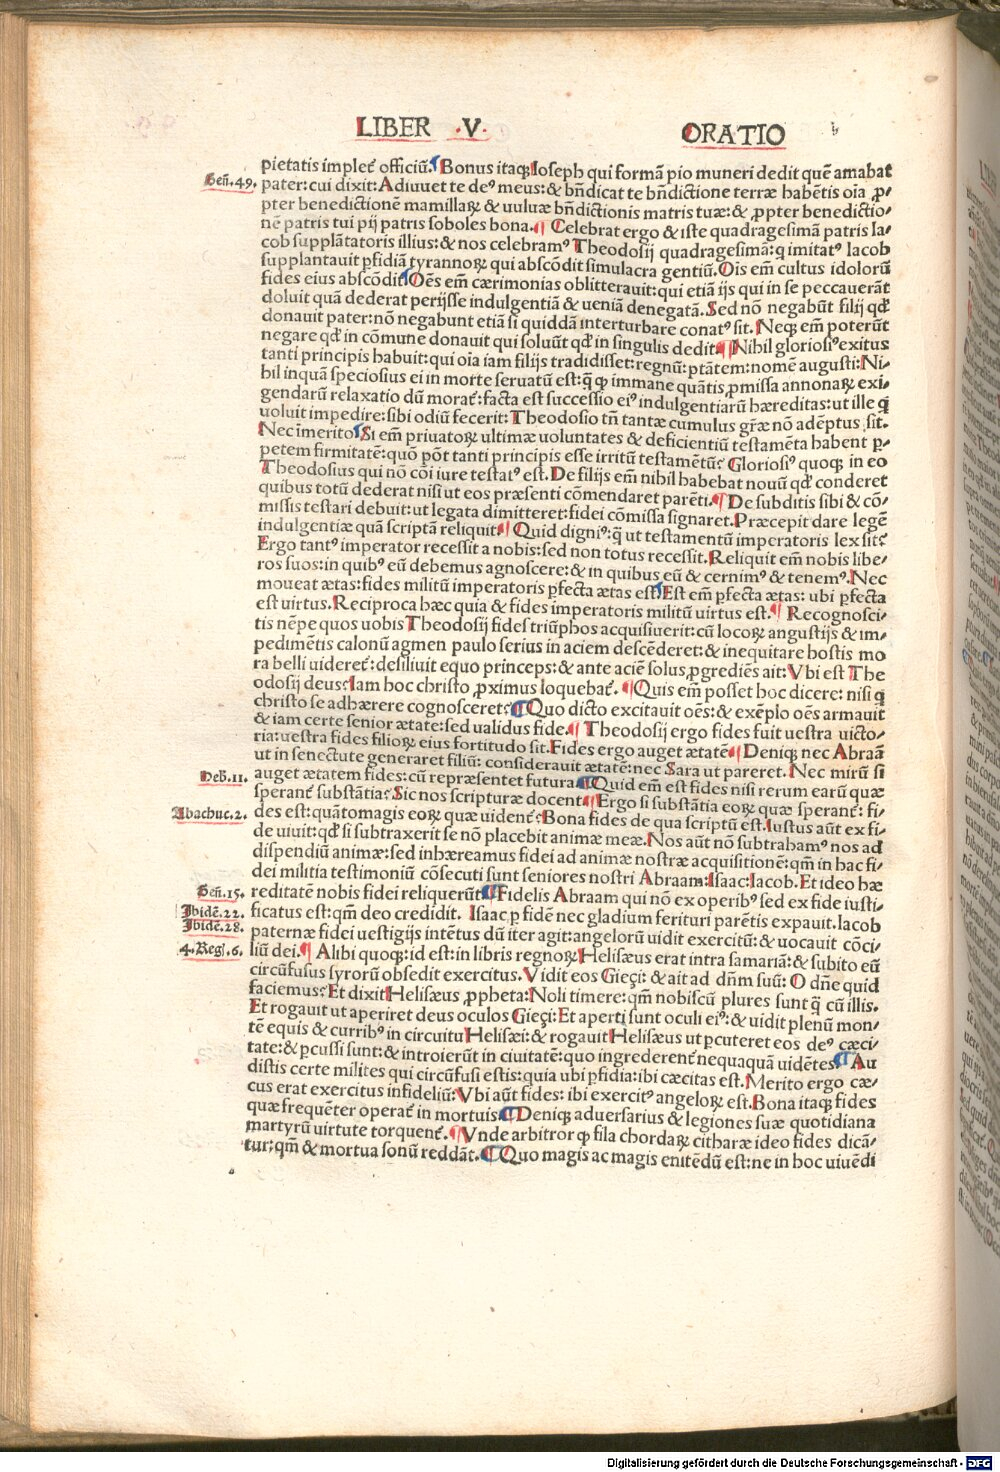 LIBER ·V· ORATIO
pietatis implet᷑ officiū. Bonus itaqꝫ Ioseph qui formā pio muneri dedit quē amabat
Gen̄.49. pater: cui dixit: Adiuuet te deꝰ meus: & bn̄dicat te bn̄dictione terræ habētis oīa ꝓ⸗
pter benedictionē mamillaꝝ & uuluæ bn̄dictionis matris tuæ: & ꝓpter benedictio⸗
nē patris tui pij patris soboles bona. ¶ Celebrat ergo & iste quadragesimā patris Ia⸗
cob supplātatoris illius: & nos celebramꝰ Theodosij quadragesimā: q imitatꝰ Iacob
supplantauit ꝑfidiā tyrannoꝝ qui abscōdit simulacra gentiū. Ois em̄ cultus idolorū
fides eius abscōdit ¶ Oēs em̄ cærimonias oblitterauit: qui etiā ijs qui in se peccauerāt
doluit quā dederat perijsse indulgentiā & ueniā denegatā. Sed nō negabūt filij qd̓
donauit pater: nō negabunt etiā si quiddā interturbare conatꝰ sit. Neqꝫ em̄ poterūt
negare qd̓ in cōmune donauit qui soluūt qd̓ in singulis dedit ¶ Nihil gloriosiꝰ exitus
tanti principis habuit: qui oīa iam filijs tradidisset: regnū: ptātem: nomē augusti: Ni⸗
hil inquā speciosius ei in morte seruatū est: q̄ ꝙ immane quātis ꝓmissa annonaꝝ exi⸗
gendarū relaxatio dū morat᷑: facta est successio eiꝰ indulgentiarū hæreditas: ut ille q̄
uoluit impedire: sibi odiū fecerit: Theodosio tn̄ tantæ cumulus gr̄æ nō adēptus sit.
Nec īmerito ¶ Si em̄ priuatoꝝ ultimæ uoluntates & deficientiū testamēta habent ꝑ⸗
petem firmitatē: quō pōt tanti principis esse irritū testamētū? Gloriosiꝰ quoqꝫ in eo
Theodosius qui nō cōi iure testatꝰ est. De filijs em̄ nihil habebat nouū qd̓ conderet
quibus totū dederat nisi ut eos præsenti cōmendaret parēti. ¶ De subditis sibi & cō⸗
missis testari debuit: ut legata dimitteret: fidei cōmissa signaret. Præcepit dare legē
indulgentiæ quā scriptā reliquit ¶ Quid digniꝰ: q̄ ut testamentū imperatoris lex sit?
Ergo tantꝰ imperator recessit a nobis: sed non totus recessit. Reliquit em̄ nobis libe⸗
ros suos: in quibꝰ eū debemus agnoscere: & in quibus eū & cernimꝰ & tenemꝰ. Nec
moueat ætas: fides militū imperatoris ꝑfecta ætas est ¶ Est em̄ ꝑfecta ætas: ubi ꝑfecta
est uirtus. Reciproca hæc quia & fides imperatoris militū uirtus est. ¶ Recognosci⸗
tis nēpe quos uobis Theodosij fides triūphos acquisiuerit: cū locoꝝ angustijs & im⸗
pedimētis calonū agmen paulo serius in aciem descēderet: & inequitare hostis mo
ra belli uideret᷑: desiliuit equo princeps: & ante aciē solus ꝓgrediēs ait: Vbi est The
odosij deus? Iam hoc christo ꝓximus loquebat᷑. ¶ Quis em̄ posset hoc dicere: nisi q̄
christo se adhærere cognosceret? ¶ Quo dicto excitauit oēs: & exēplo oēs armauit
& iam certe senior ætate: sed ualidus fide. ¶ Theodosij ergo fides fuit uestra uicto⸗
ria: uestra fides filioꝝ eius fortitudo sit. Fides ergo auget ætatē ¶ Deniqꝫ nec Abraā
ut in senectute generaret filiū: considerauit ætatē: nec Sara ut pareret. Nec mirū si
Heb.11. auget ætatem fides: cū repræsentet futura ¶ Quid em̄ est fides nisi rerum earū quæ
sperant᷑ substātia? Sic nos scripturæ docent ¶ Ergo si substātia eoꝝ quæ sperant᷑: fi⸗
Abachuc.2. des est: quātomagis eoꝝ quæ uident᷑? Bona fides de qua scriptū est. Iustus aūt ex fi⸗
de uiuit: qd̓ si subtraxerit se nō placebit animæ meæ. Nos aūt nō subtrahamꝰ nos ad
dispendiū animæ: sed inhæreamus fidei ad animæ nostræ acquisitionē: qm̄ in hac fi⸗
dei militia testimoniū cōsecuti sunt seniores nostri Abraam: Isaac: Iacob. Et ideo hæ
Gen̄.15. reditatē nobis fidei reliquerūt ¶ Fidelis Abraam qui nō ex operibꝰ sed ex fide iusti⸗
Ibidē.22. ficatus est: qm̄ deo credidit. Isaac ꝑ fidē nec gladium ferituri parētis expauit. Iacob
Ibidē.28. paternæ fidei uestigijs intētus dū iter agit: angelorū uidit exercitū: & uocauit cōci⸗
4.Reg.6. liū dei. ¶ Alibi quoqꝫ: id est: in libris regnoꝝ Helisæus erat intra samariā: & subito eū
circūfusus syrorū obsedit exercitus. Vidit eos Gieçi: & ait ad dn̄m suū: O dn̄e quid
faciemus? Et dixit Helisæus ꝓpheta: Noli timere: qm̄ nobiscū plures sunt q̄ cū illis.
Et rogauit ut aperiret deus oculos Gieçi: Et aperti sunt oculi eiꝰ: & uidit plenū mon⸗
tē equis & curribꝰ in circuitu Helisæi: & rogauit Helisæus ut ꝑcuteret eos deꝰ cæci⸗
tate: & ꝑcussi sunt: & introierūt in ciuitatē: quo ingrederent᷑ nequaquā uidētes. ¶ Au
distis certe milites qui circūfusi estis: quia ubi ꝑfidia: ibi cæcitas est. Merito ergo cæ⸗
cus erat exercitus infideliū: Vbi aūt fides: ibi exercitꝰ angeloꝝ est. Bona itaqꝫ fides
quæ frequēter operat᷑ in mortuis ¶ Deniqꝫ aduersarius & legiones suæ quotidiana
martyrū uirtute torquent᷑. ¶ Vnde arbitror ꝙ fila chordaꝝ citharæ ideo fides dicā⸗
tur: qm̄ & mortua sonū reddāt. ¶ Quo magis ac magis enitēdū est: ne in hoc uiuēdi
Digitalisierung gefördert durch die Deutsche Forschungsgemeinschaft - DFG